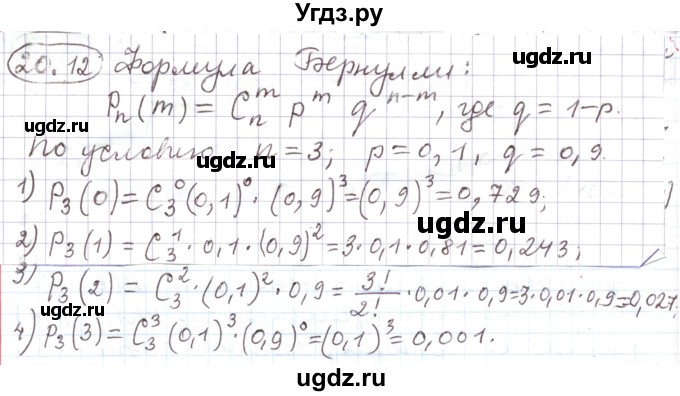 Угдз.ру
20.12 Формула Бернулли:
Pₙ(m) = Cₙᵐ pᵐ qⁿ⁻ᵐ, где q = 1-p.
ugdz.ru
ugdz.ru
По условию n = 3; p = 0,1, q = 0,9.
ugdz.ru
1) P₃(0) = C₃⁰(0,1)⁰·(0,9)³=(0,9)³=0,729;
ugdz.ru
2) P₃(1) = C₃¹·0,1·(0,9)²=3·0,1·0,81=0,243;
3) P₃(2) = C₃²·(0,1)²·0,9 = 3!/2!·0,01·0,9=3·0,01·0,9=0,027;
ugdz.ru
ugdz.ru
4) P₃(3) = C₃³(0,1)³·(0,9)⁰=(0,1)³=0,001.
ugdz.ru
ugdz.ru